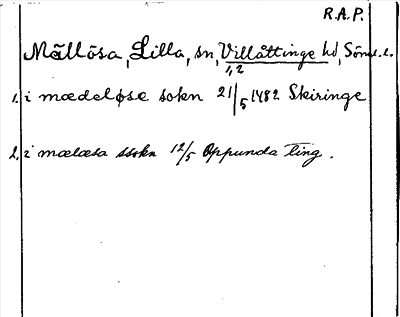 R.A.P.
Mällösa, Lilla, sn, Villåttinge hd, Söml. l.
1,2
1. i mædeløse sokn 21/5 1482 Skiringe
2. i mælæsa ssokn 12/5 Oppunda ting.